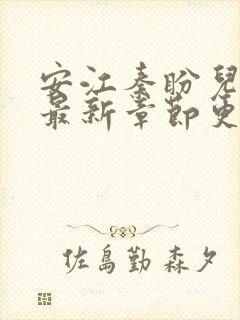 安江秦盼兒
最新章節更
佐島勤 森夕